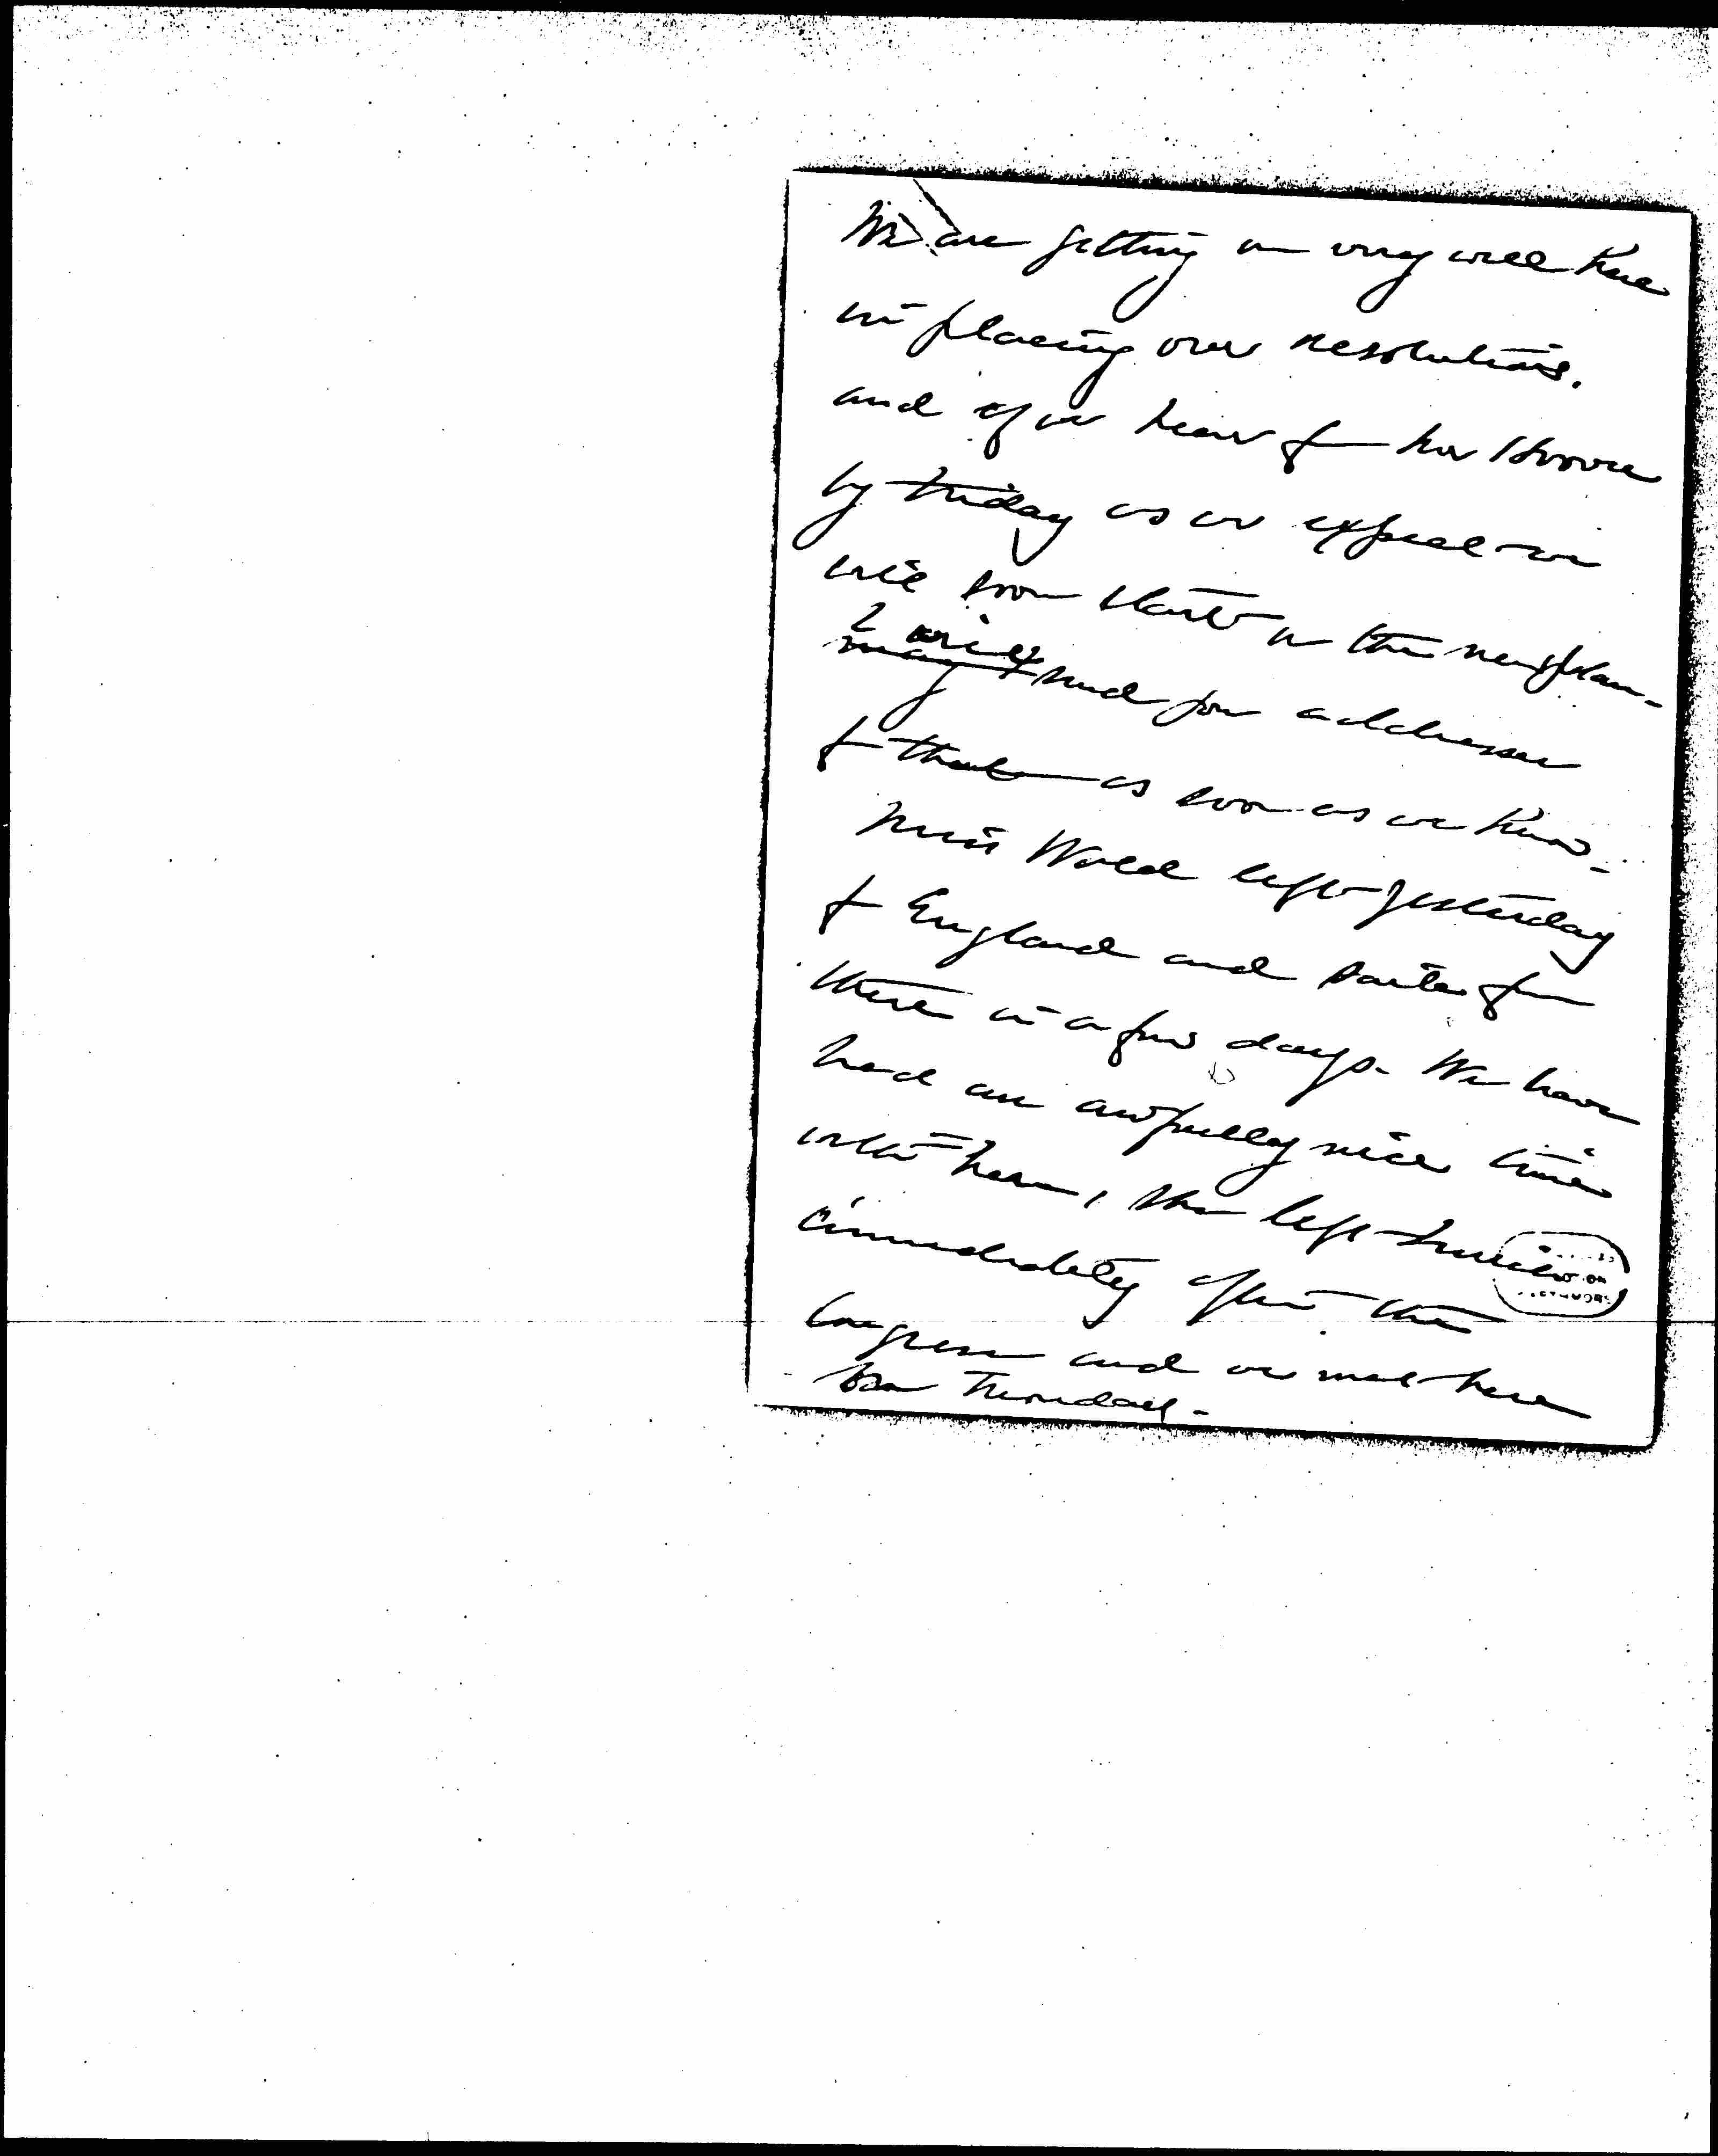 We are getting on very well here
in placing our resolutions.
and if we hear from Mr Hoover
by Friday as we expect we
will soon start on the new plan.
I will
may send you addresses
for that as soon as we know.
Miss Wald left yesterday
for England and sails from
there in a few days. We have
had an awfully nice time
with her, she left Zurich
immediately after the
Congress and we met here
on Thursday.